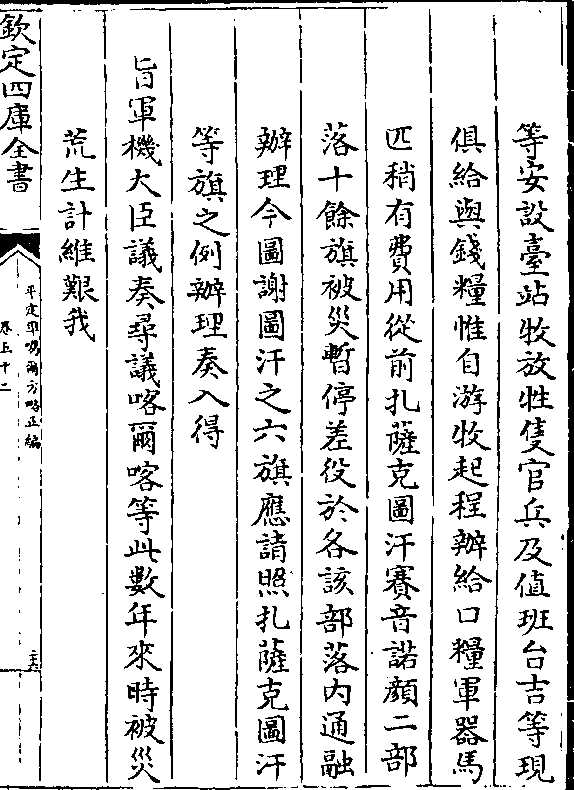 等安設臺站牧放牲隻官兵及值班台吉等現
俱給與錢糧惟自游牧起程辦給口糧軍器馬
匹稍有費用從前扎薩克圖汗賽音諾顏二部
落十餘旗被災暫停差役於各該部落内通融
辦理今圖謝圖汗之六旗應請照扎薩克圖汗
等旗之例辦理奏入得
旨軍機大臣議奏尋議喀爾喀等此數年來時被災
荒生計維艱我
欽定四庫全書
平定凖噶爾方略正編
卷五十二